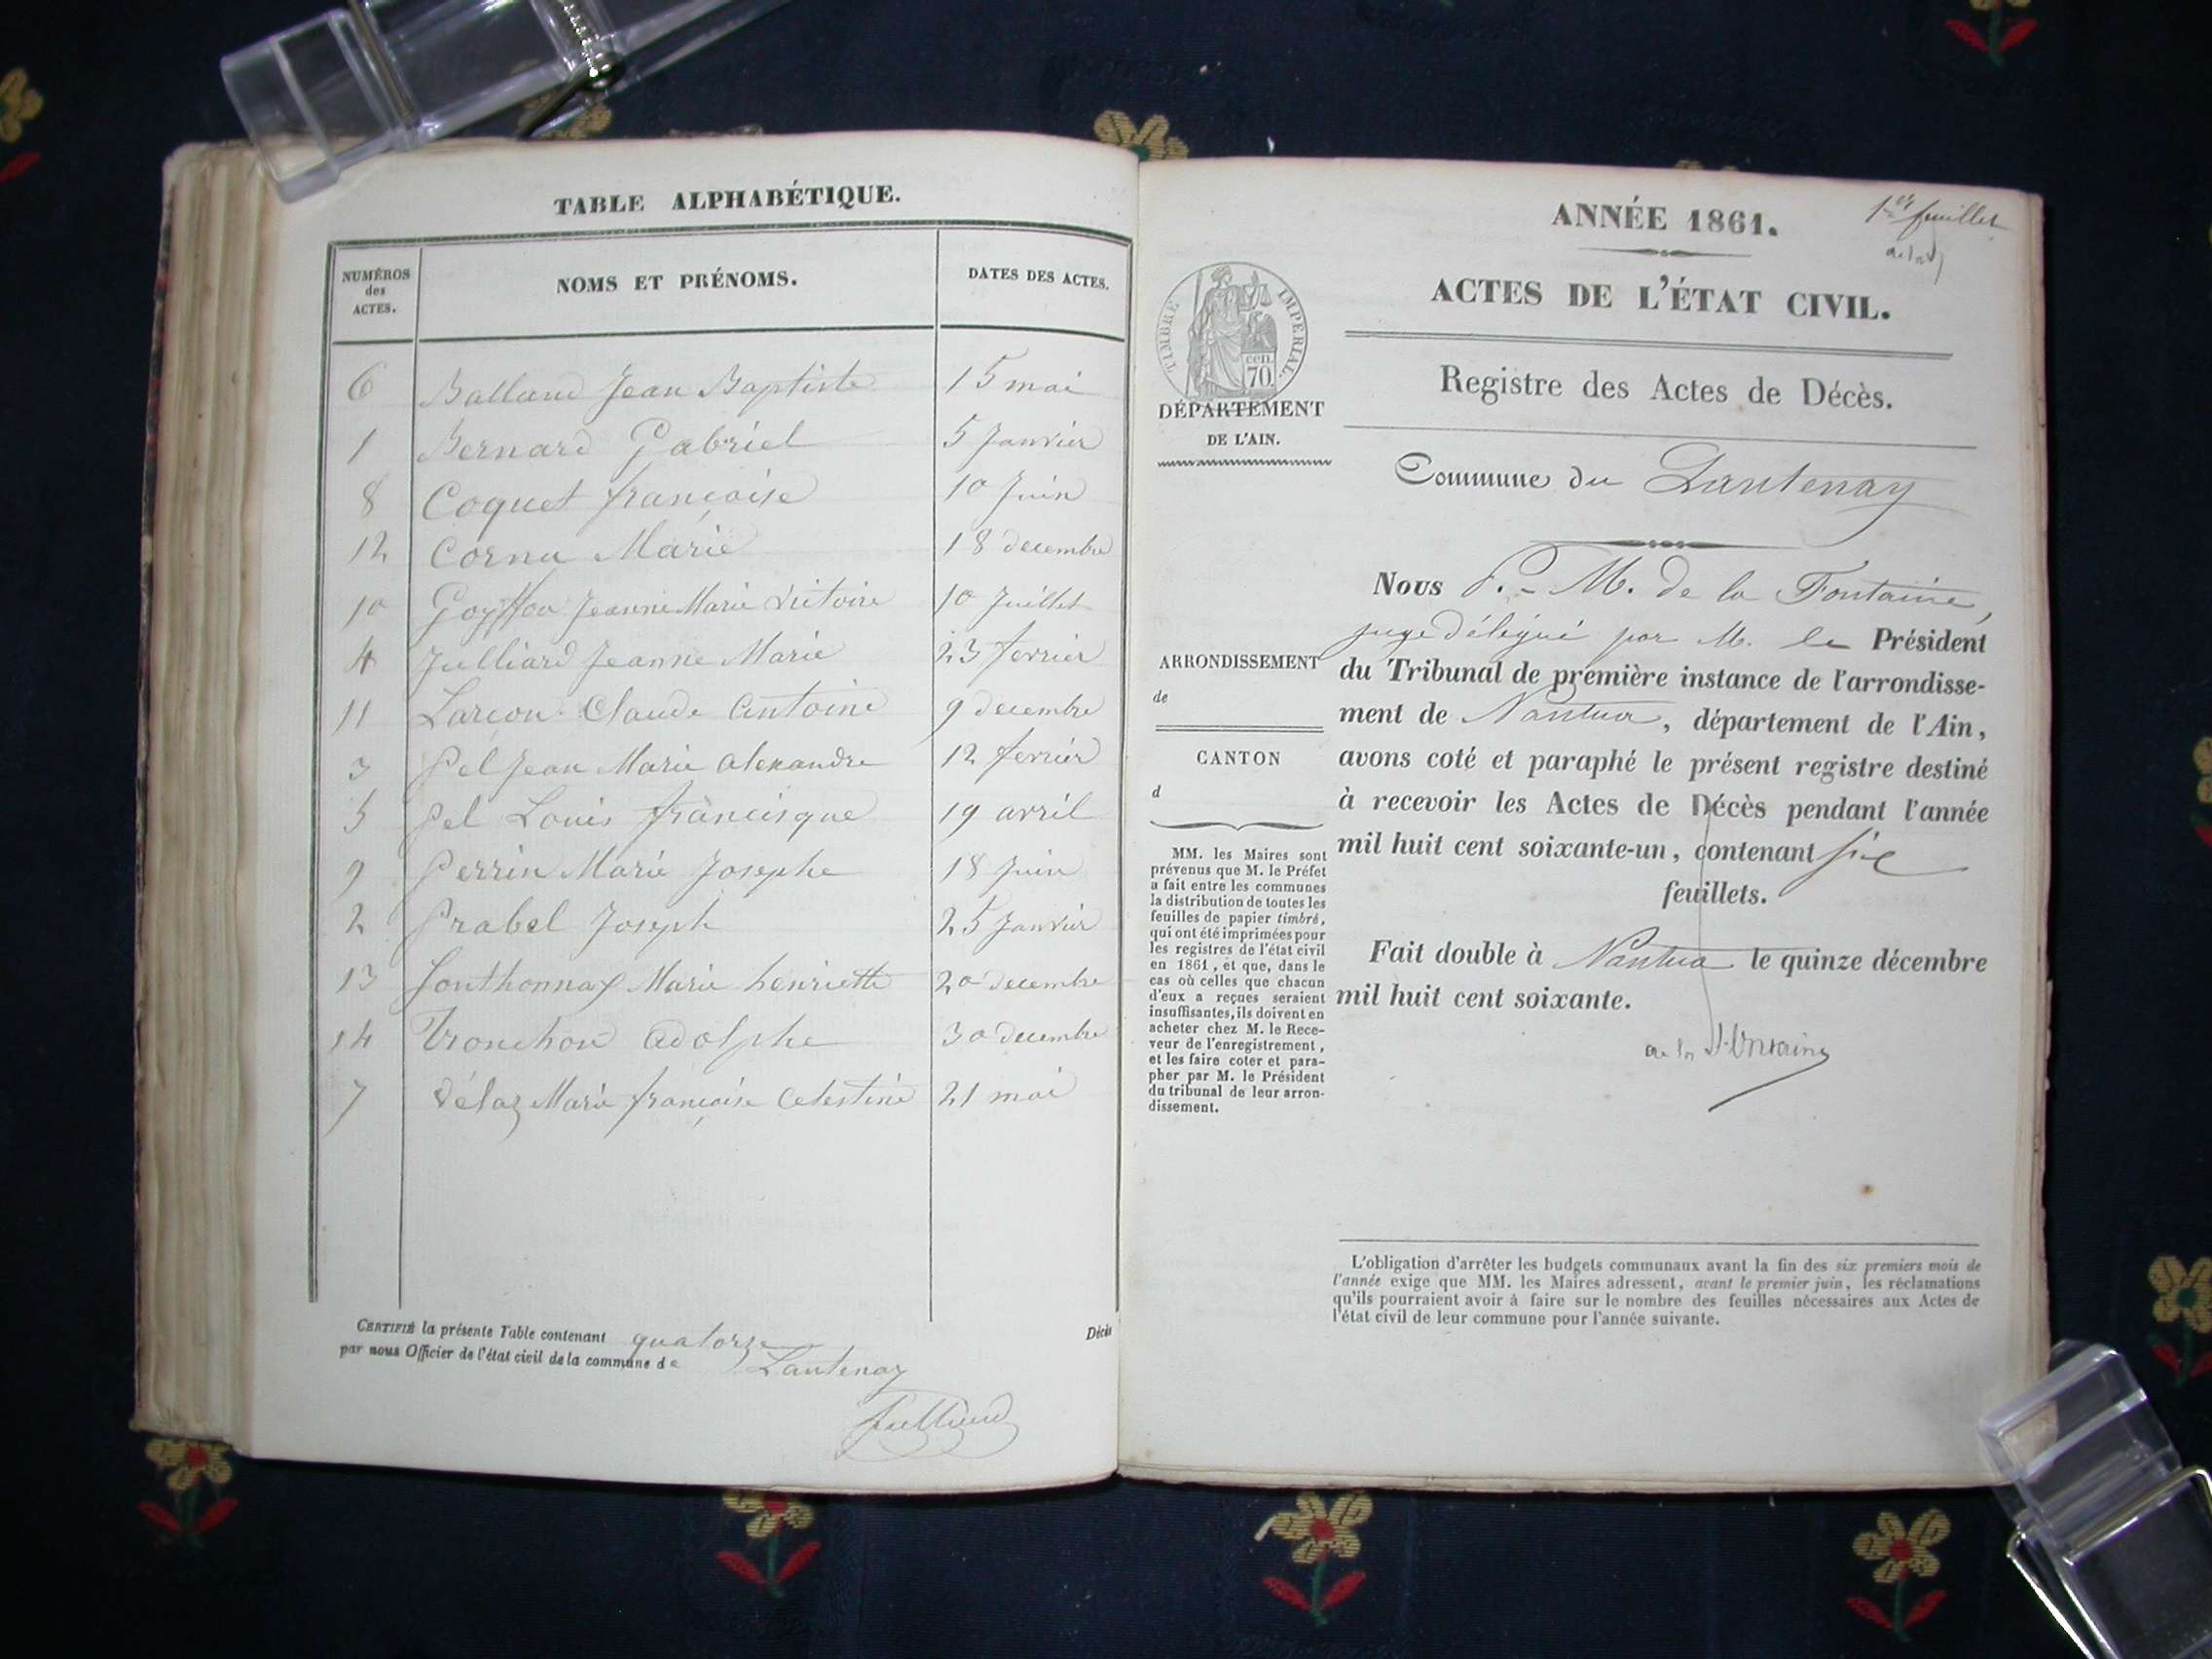 TABLE ALPHABÉTIQUE.
NUMÉROS des ACTES. NOMS ET PRÉNOMS. DATES DES ACTES.
6 Balland Jean Baptiste 15 mai
1 Bernard Gabriel 5 Janvier
8 Coquet françoise 10 Juin
12 Cornu Marie 18 decembre
10 Goyffon Jeanne Marie Victoire 10 Juillet
4 Julliard Jeanne Marie 23 fevrier
11 Larçon Claude Antoine 9 decembre
3 Pel Jean Marie alexandre 12 fevrier
5 Pel Louis francisque 19 avril
9 Perrin Marie Josephe 18 Juin
2 Prabel Joseph 25 Janvier
13 Sonthonnax Marie henriette 20 decembre
14 Tronchon Adolphe 30 decembre
7 Vélaz Marie françoise Celestine 21 mai
CERTIFIÉ la présente Table contenant quatorze
Décès
par nous Officier de l'état civil de la commune de Lantenay
Julliard
1er feuillet
ANNÉE 1861.
ACTES DE L'ÉTAT CIVIL.
Registre des Actes de Décès.
TIMBRE IMPERIAL.
cen.
70.
DÉPARTEMENT
DE L'AIN.
Commune de Lantenay
Nous P.-M. de la Fontaine,
juge délégué par M. le Président
du Tribunal de première instance de l'arrondisse-
ment de Nantua, département de l'Ain,
avons coté et paraphé le présent registre destiné
à recevoir les Actes de Décès pendant l'année
mil huit cent soixante-un, contenant six
feuillets.
Fait double à Nantua le quinze décembre
mil huit cent soixante.
de la Fontaine
ARRONDISSEMENT
de
CANTON
d
MM. les Maires sont
prévenus que M. le Préfet
a fait entre les communes
la distribution de toutes les
feuilles de papier timbré,
qui ont été imprimées pour
les registres de l'état civil
en 1861, et que, dans le
cas où celles que chacun
d'eux a reçues seraient
insuffisantes, ils doivent en
acheter chez M. le Rece-
veur de l'enregistrement,
et les faire coter et para-
pher par M. le Président
du tribunal de leur arron-
dissement.
L'obligation d'arrêter les budgets communaux avant la fin des six premiers mois de
l'année exige que MM. les Maires adressent, avant le premier juin, les réclamations
qu'ils pourraient avoir à faire sur le nombre des feuilles nécessaires aux Actes de
l'état civil de leur commune pour l'année suivante.